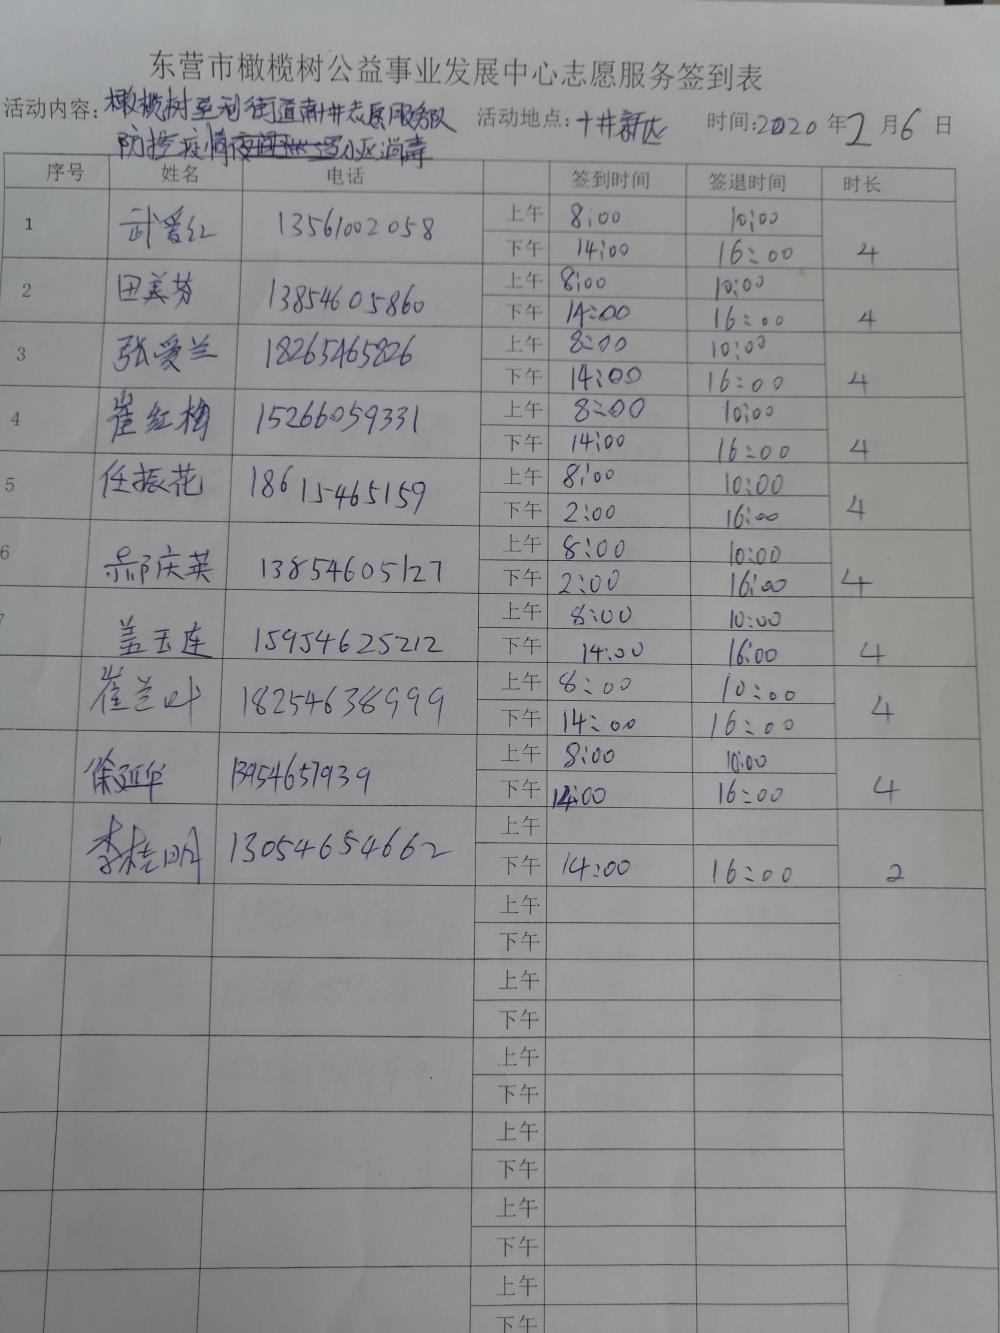 东营市橄榄树公益事业发展中心志愿服务签到表
活动内容: 橄榄树垦利街道南十井志愿服务队 活动地点: 十井新区 时间:2020年2月6日
防控疫情 小区消毒
序号 姓名 电话 签到时间 签退时间 时长
1 武爱红 13561002058 上午 8:00 10:00
下午 14:00 16:00 4
2 田美芬 13854605860 上午 8:00 10:00
下午 14:00 16:00 4
3 张爱兰 18265465826 上午 8:00 10:00
下午 14:00 16:00 4
4 崔红梅 15266059331 上午 8:00 10:00
下午 14:00 16:00 4
5 任振花 18615465159 上午 8:00 10:00
下午 2:00 16:00 4
6 郝庆英 13854605127 上午 8:00 10:00
下午 2:00 16:00 4
盖玉连 15954625212 上午 8:00 10:00
下午 14:00 16:00 4
崔兰叶 18254638999 上午 8:00 10:00
下午 14:00 16:00 4
徐延华 13954657939 上午 8:00 10:00
下午 14:00 16:00 4
李桂明 13054654662 上午
下午 14:00 16:00 2
上午
下午
上午
下午
上午
下午
上午
下午
上午
下午
上午
下午